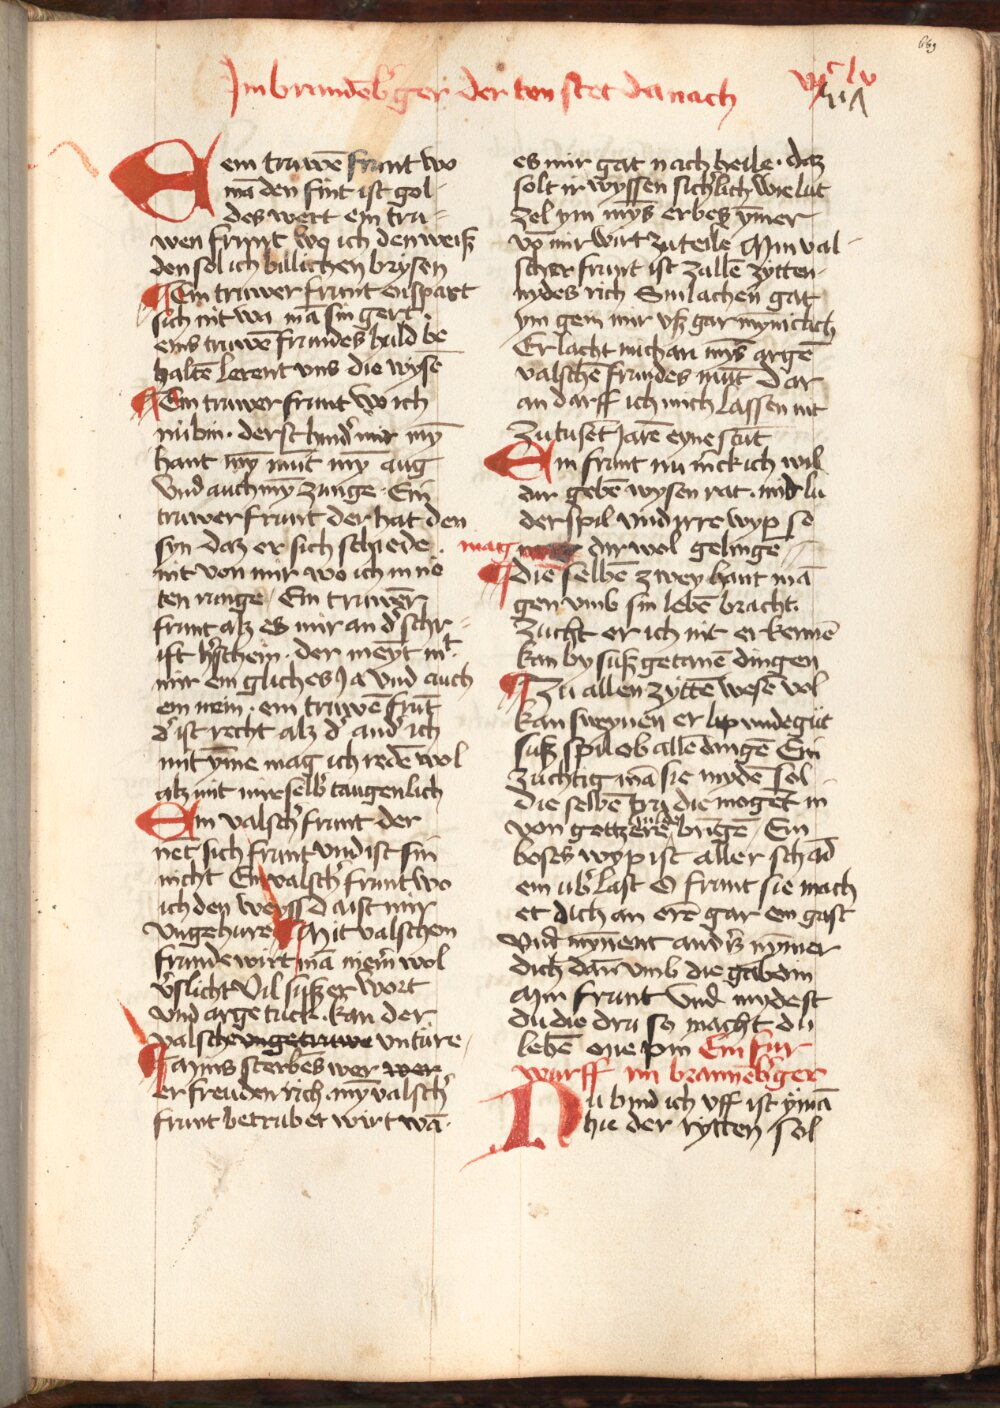 669
Im brandēb'ger der ton stet da nach
Eem truwē frunt wo
mā den fint ist gol-
des wert ein tru-
wen frunt wo ich den weiß
den sol ich billichen brysen
Ein truwer frunt enspart
sich nit wa mā sin gert.
eins truwē frundes huld be
haltē lerent vns die wysē
Ein truwer frunt wo ich
nū bin. der ist hinder mir mȳ
hant mȳ mūt mȳ aug
Vnd auch mȳ zunge. Ein
truwer frunt der hat den
syn daz er sich schiede.
nit von mir wo ich in nō
ten runge Ein truwer
frunt alz es mir an d' schr-
ift h'schein. der meyt mt
mir ein gliches Ja vnd auch
ein nein. ein truwē frūt
d' ist recht alz d' and' ich
mit ȳme mag ich redē wol
alz mit mir selb' taugenlich
Ein valsch' frunt der
net sich frunt vnd ist sin
nicht Ein valsch' frunt wo
ich den weyss Da ist mir
vngehure Mit valschem
frunde wirt mā niem' wol
v'slicht Vil susser wort
vnd arge tucke. kan der
valsche vngetruwe vnture
Mins sterbēs wer wer
er freuden rich. mȳ valsch'
frunt betrubet wirt wā.
es mir gat nach heile. daz
solt ir wyssen sichlich wie lut
zel ym mȳs erbes ȳmer
vō mir wirt zu teile Min val-
scher frunt ist zallē zytten
nydes rich Sin lachen gat
ym gein mir vß gar mynnclich
Er lacht mich an mȳs argē
valschē frundes mūt Dar
an darff ich mich lassen nit
Zu tuset Jarē eyne stūt
Ein frunt nu m'ck ich wil
dir gebē wysen rat. mit lu
der spil vnd irre wyp so
mag dir wol gelinge
die selbē zwey hant mā
gen vmb sin lebē bracht.
Zucht er ich nit erkennē
kan by suß getanē dingen
Zu allen zyttē wesē vol
kan sweynen er lip vnde gūt
suß spil ob allē dingē Ein
zuchtig mā sie mydē sol
die selbē dru die mogēt in
von gottz hulde erē brīgē Ein
boses wyp ist aller schad
ein ub' last O frunt sie mach
et dich an erē gar ein gast
Vnd mȳnent anders nȳmer
dich dan vmb die gabe din
Min frunt vnd mydest
du die dru so macht du
lebē one pin Ein fur
wurff im brannēb'ger
Nu bind ich vff ist ȳmā
hie der rytten sol